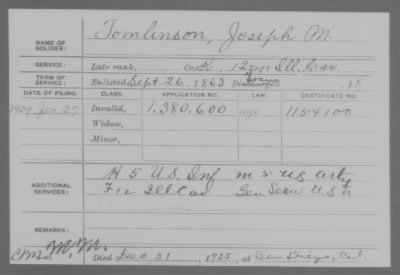 NAME OF SOLDIER: Tomlinson, Joseph M.
SERVICE: Late rank, Co K, 12 Ill. Cav.
TERM OF SERVICE: Enlisted Sept. 26, 1863 Discharged , 18
DATE OF FILING. CLASS. APPLICATION NO. LAW. CERTIFICATE NO.
1909, Jan. 27 Invalid, 1.380.600 1154100
Widow,
Minor,
ADDITIONAL SERVICES: H 5 U.S. Inf M 5 US Arty
F 12 Ill Cav Gen Serv U S A
REMARKS:
Died Dec 31, 1925, at San Diego, Cal.